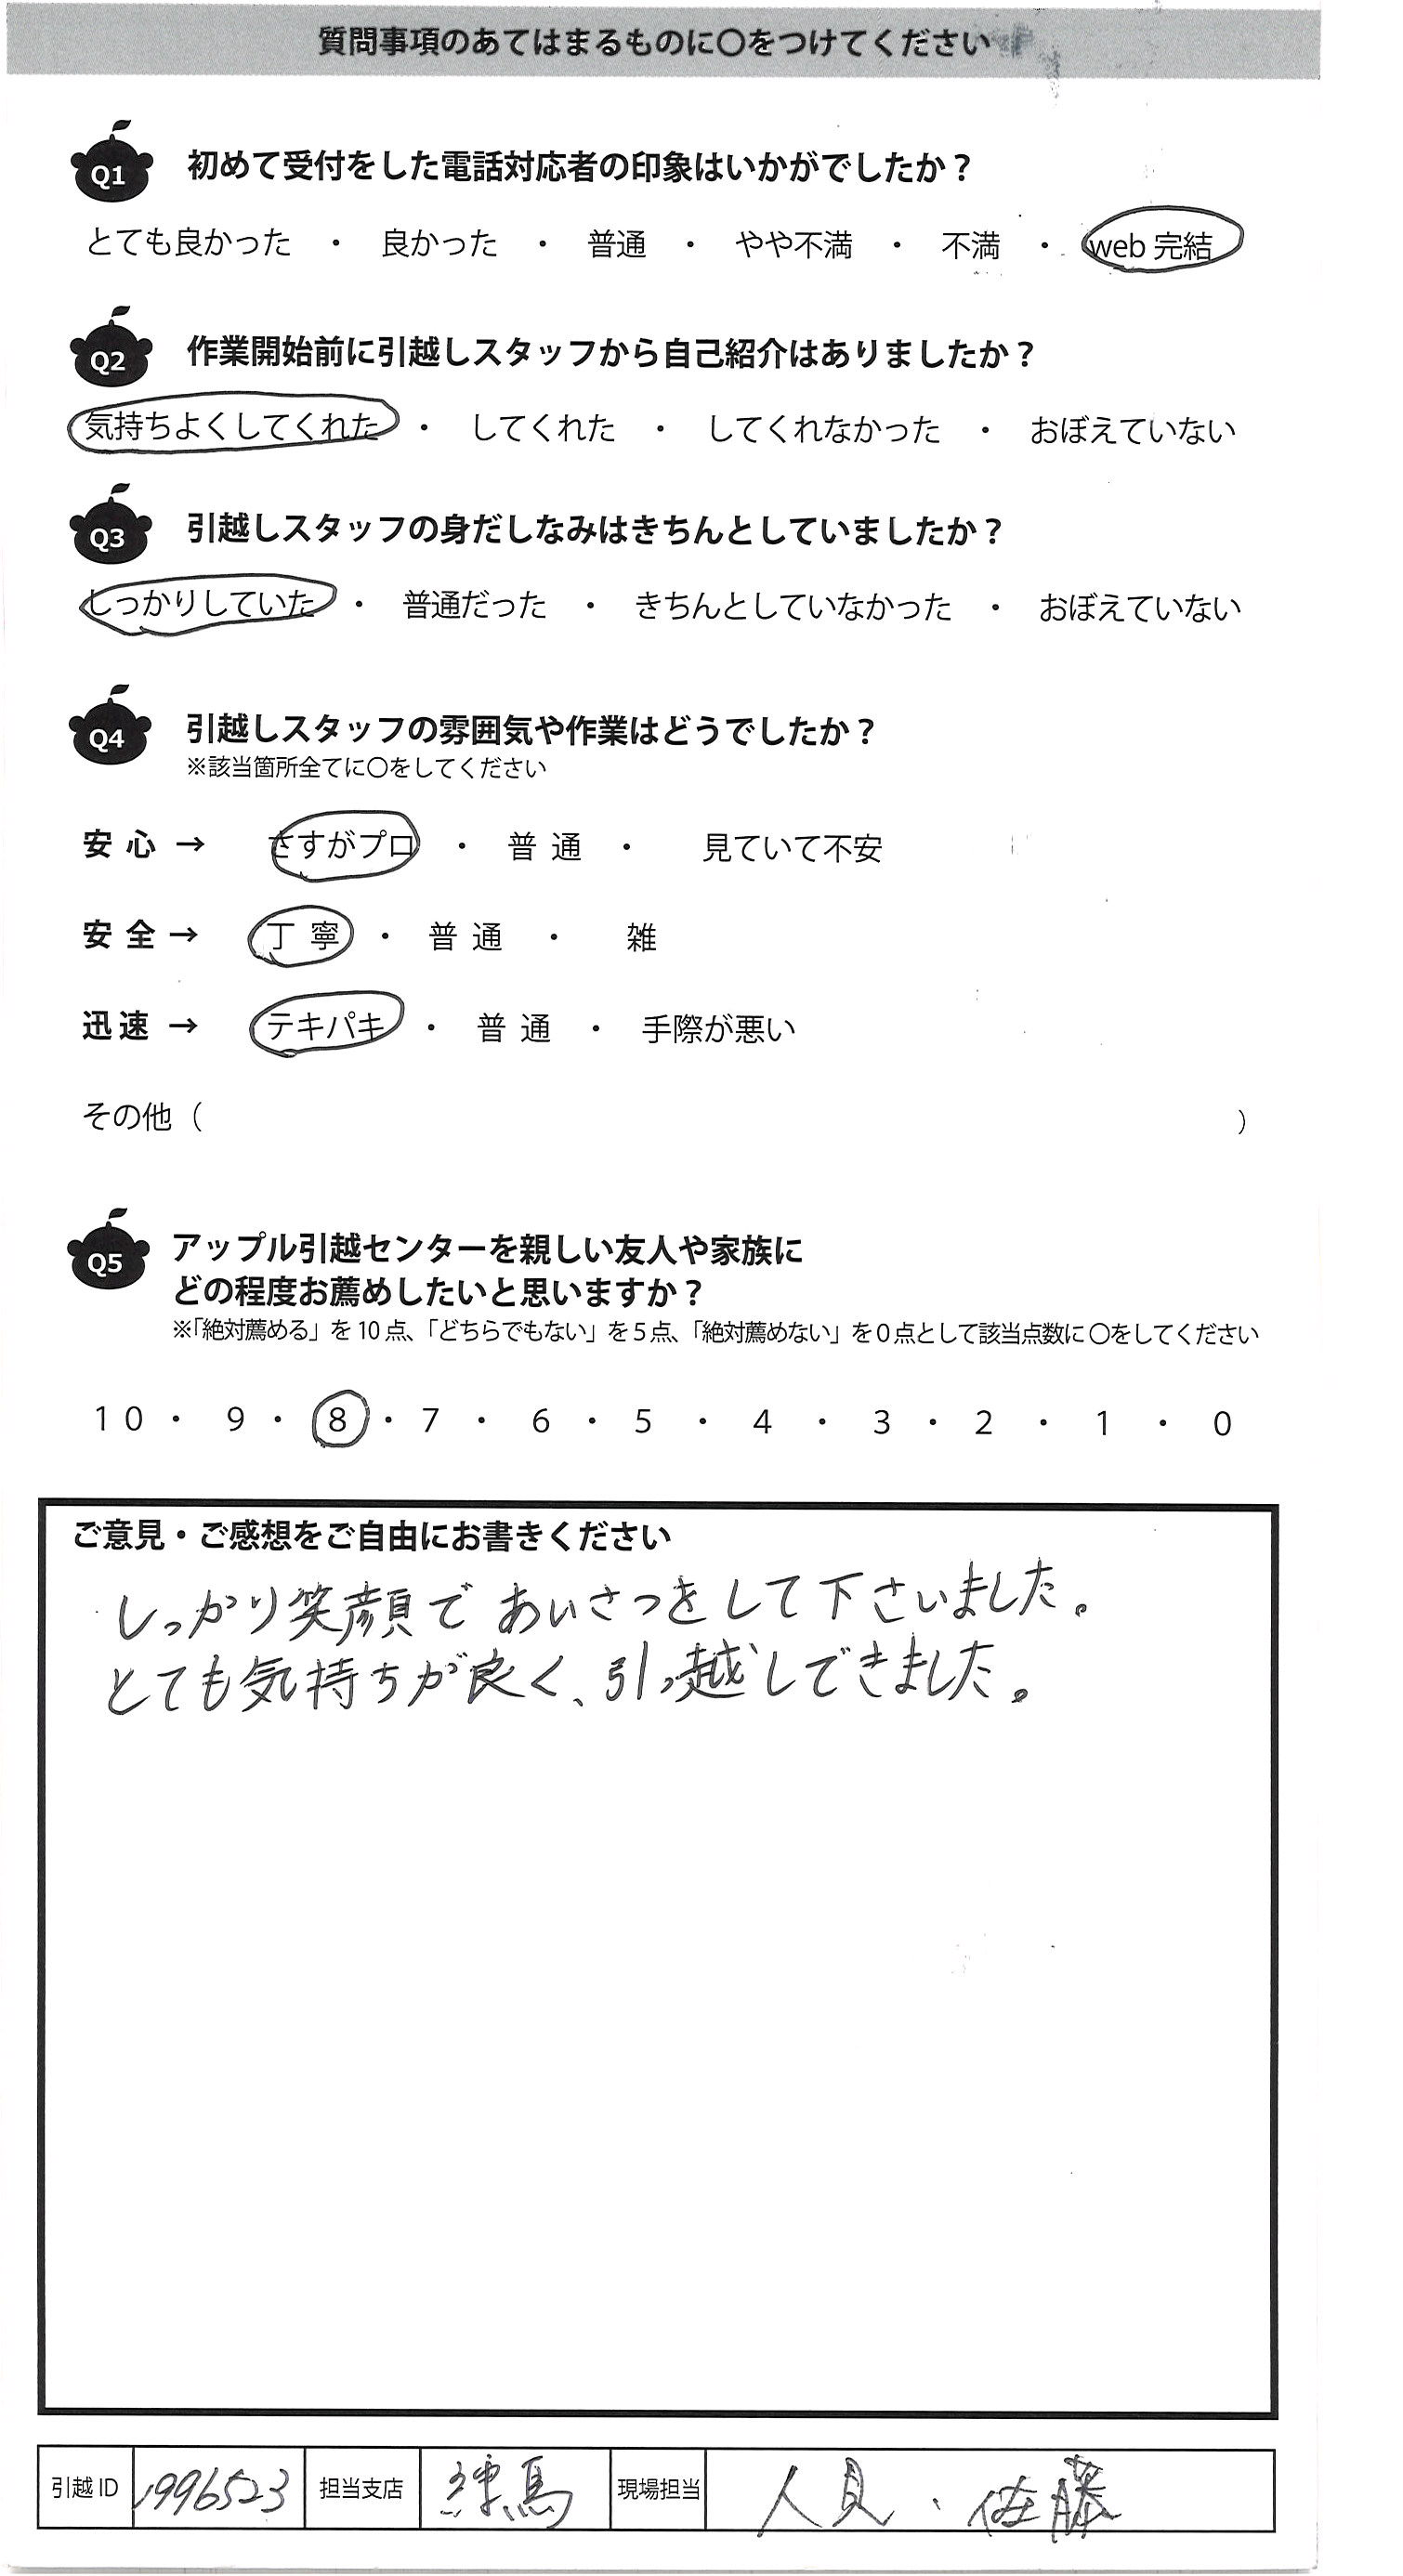 質問事項のあてはまるものに〇をつけてください
Q1 初めて受付をした電話対応者の印象はいかがでしたか？
とても良かった ・ 良かった ・ 普通 ・ やや不満 ・ 不満 ・ web 完結
Q2 作業開始前に引越しスタッフから自己紹介はありましたか？
気持ちよくしてくれた ・ してくれた ・ してくれなかった ・ おぼえていない
Q3 引越しスタッフの身だしなみはきちんとしていましたか？
しっかりしていた ・ 普通だった ・ きちんとしていなかった ・ おぼえていない
Q4 引越しスタッフの雰囲気や作業はどうでしたか？
※該当箇所全てに〇をしてください
安心 → さすがプロ ・ 普通 ・ 見ていて不安
安全 → 丁寧 ・ 普通 ・ 雑
迅速 → テキパキ ・ 普通 ・ 手際が悪い
その他（ ）
Q5 アップル引越センターを親しい友人や家族に
どの程度お薦めしたいと思いますか？
※「絶対薦める」を 10 点、「どちらでもない」を 5 点、「絶対薦めない」を 0 点として該当点数に〇をしてください
10 ・ 9 ・ 8 ・ 7 ・ 6 ・ 5 ・ 4 ・ 3 ・ 2 ・ 1 ・ 0
ご意見・ご感想をご自由にお書きください
しっかり笑顔であいさつをして下さいました。
とても気持ちが良く、引っ越しできました。
引越 ID 1996523 担当支店 練馬 現場担当 人見、佐藤